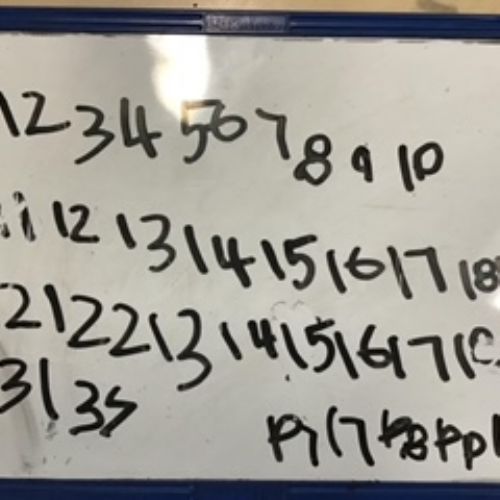 1 2 3 4 5 6 7 8 9 10
11 12 13 14 15 16 17 18
21 22 13 14 15 16 17
31 35